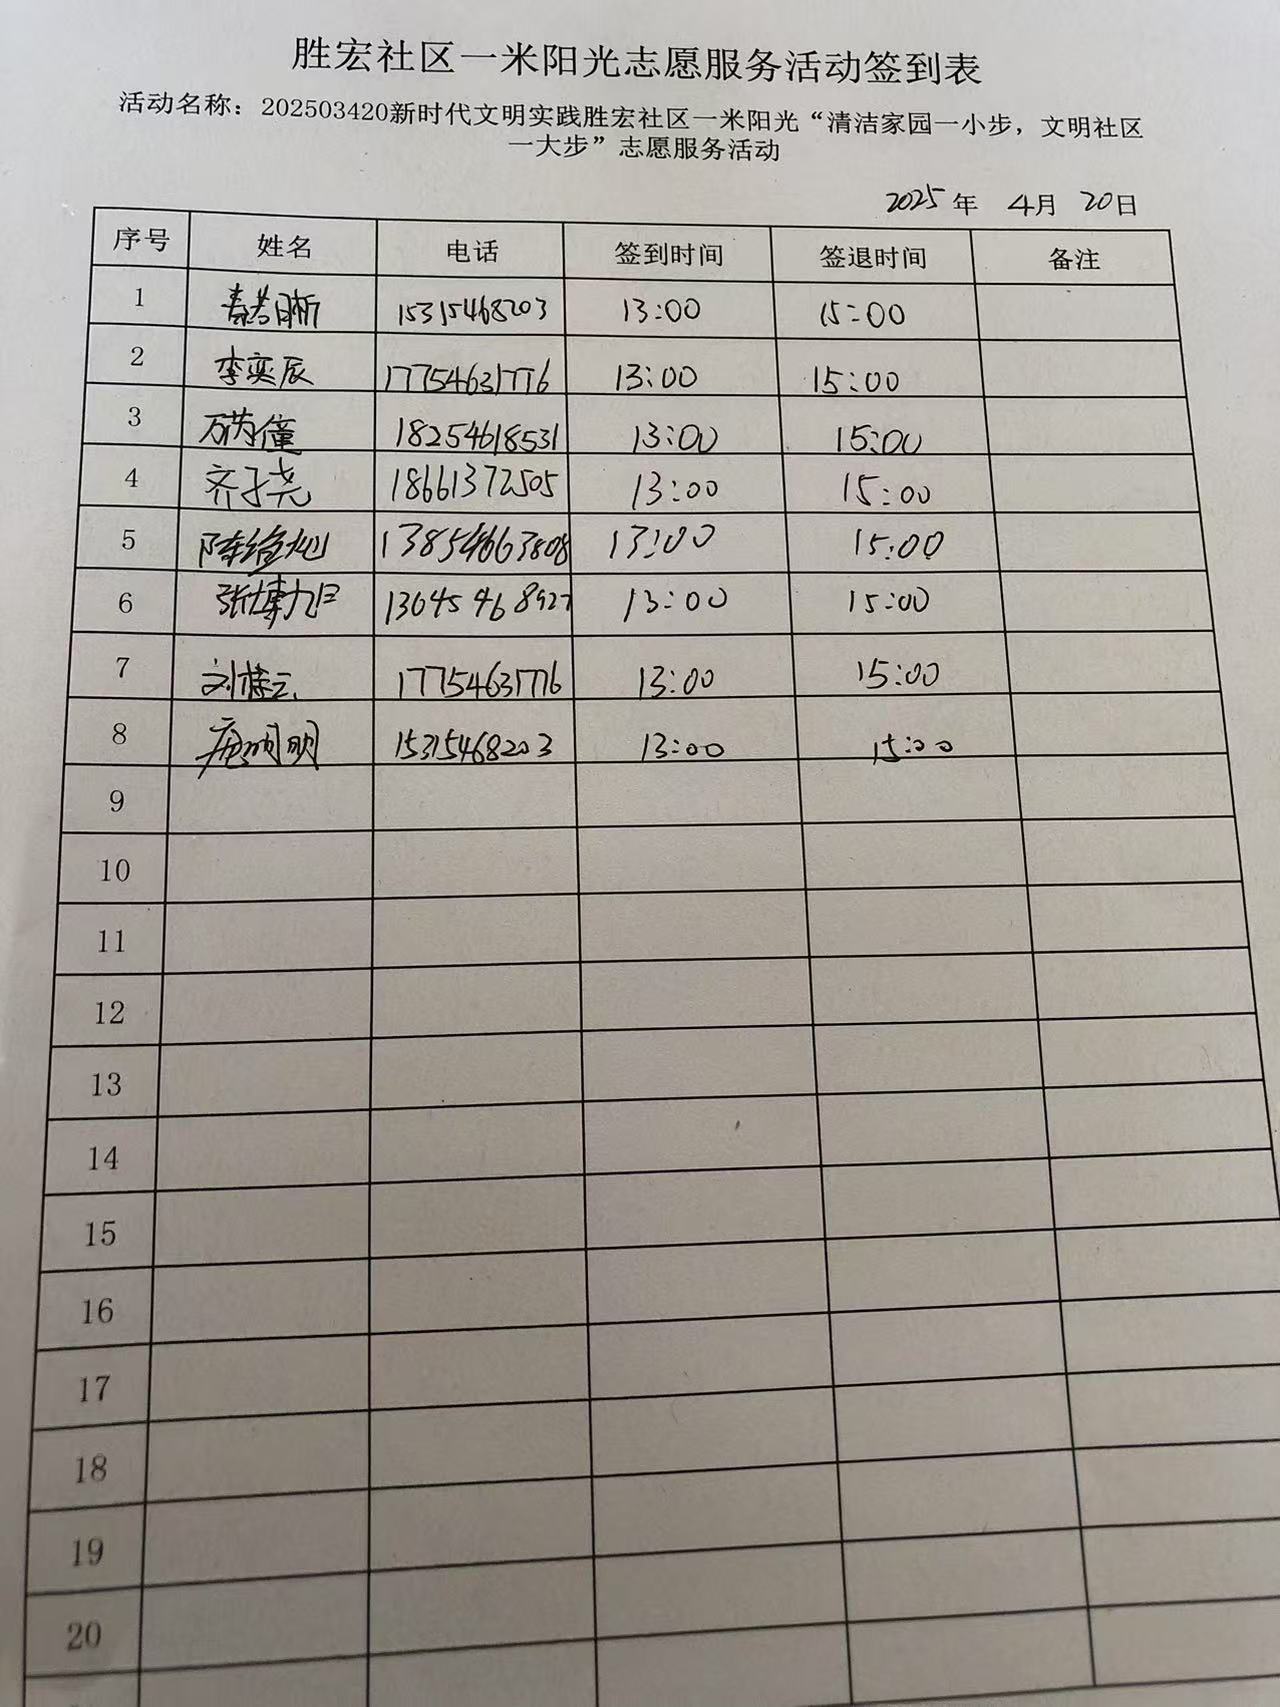 胜宏社区一米阳光志愿服务活动签到表
活动名称：202503420新时代文明实践胜宏社区一米阳光“清洁家园一小步，文明社区
一大步”志愿服务活动
2025年 4月 20日
序号 姓名 电话 签到时间 签退时间 备注
1 15315468203 13:00 15:00
2 李奕辰 17754631776 13:00 15:00
3 万芮僮 18254618531 13:00 15:00
4 齐子尧 18661372505 13:00 15:00
5 13854663808 13:00 15:00
6 张博 13645468927 13:00 15:00
7 刘 云 17754631776 13:00 15:00
8 明 15315468203 13:00 15:00
9
10
11
12
13
14
15
16
17
18
19
20